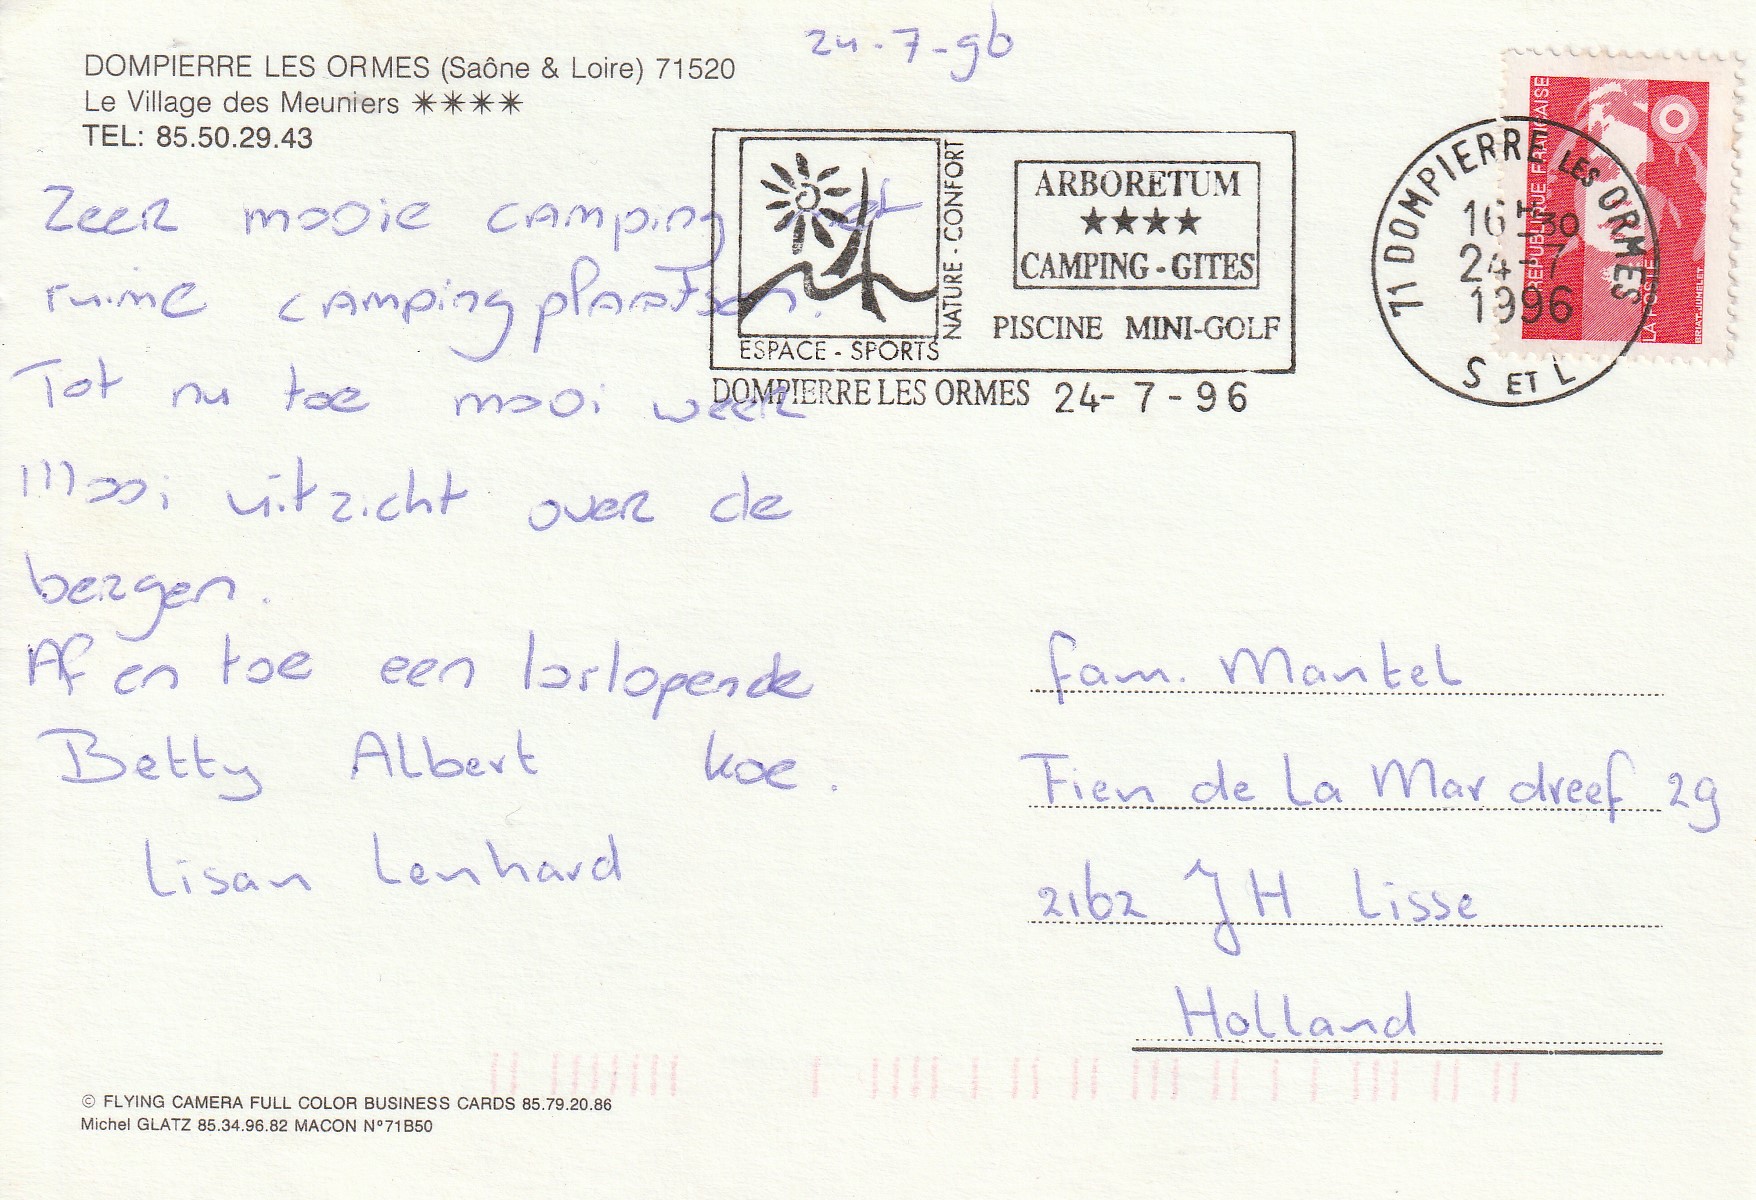 24-7-96
DOMPIERRE LES ORMES (Saône & Loire) 71520
Le Village des Meuniers ✴✴✴✴
TEL: 85.50.29.43
Zeer mooie camping met
ruime campingplaatsen.
Tot nu toe mooi weer
Mooi uitzicht over de
bergen.
Af en toe een loslopende
koe.
Betty Albert
Lisan Lenhard
NATURE - CONFORT
ESPACE - SPORTS
ARBORETUM
★★★★
CAMPING - GITES
PISCINE MINI-GOLF
DOMPIERRE LES ORMES 24-7-96
71 DOMPIERRE LES ORMES
16H30
24-7
1996
S ET L
REPUBLIQUE FRANÇAISE
LA POSTE
BRIAT-JUMELET
fam. Mantel
Fien de La Mar dreef 29
2162 JH Lisse
Holland
© FLYING CAMERA FULL COLOR BUSINESS CARDS 85.79.20.86
Michel GLATZ 85.34.96.82 MACON N°71B50